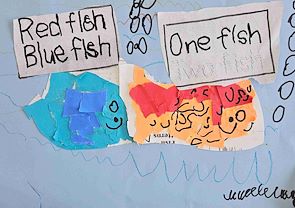 Red fish
Blue fish
One fish
Two fish